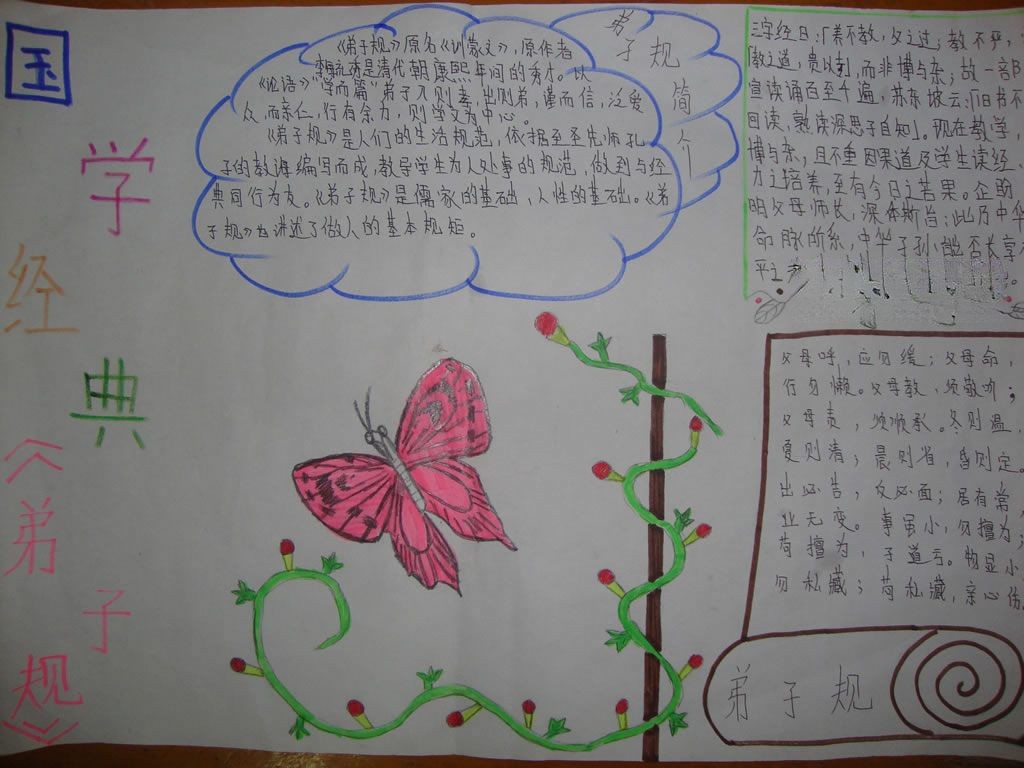 国学经典《弟子规》
弟子规简介
《弟子规》原名《训蒙文》，原作者
李毓秀是清代朝康熙年间的秀才。以
《论语》“学而篇”弟子入则孝，出则弟，谨而信，泛爱
众，而亲仁，行有余力，则学文为中心。
《弟子规》是人们的生活规范，依据至圣先师孔
子的教诲编写而成，教导学生为人处事的规范，做到与经
典同行为友。《弟子规》是儒家的基础，人性的基础。《弟
子规》也讲述了做人的基本规矩。
三字经曰，「养不教，父之过，教不严，
「教之道，贵以专」而非博与杂；故一部
宣读诵百至千遍，苏东坡云：「旧书不
回读，熟读深思子自知」。现在教学，
博与杂，且不重因果道及学生读经、
力之培养，至有今日之苦果。企盼
明父母师长，深体斯旨：此乃中华
命脉所系，中华子孙能否长享
平之
父母呼，应勿缓；父母命，
行勿懒。父母教，须敬听；
父母责，须顺承。冬则温，
夏则清；晨则省，昏则定。
出必告，反必面；居有常，
业无变。事虽小，勿擅为；
苟擅为，子道亏。物显小
勿私藏；苟私藏，亲心伤
弟子规